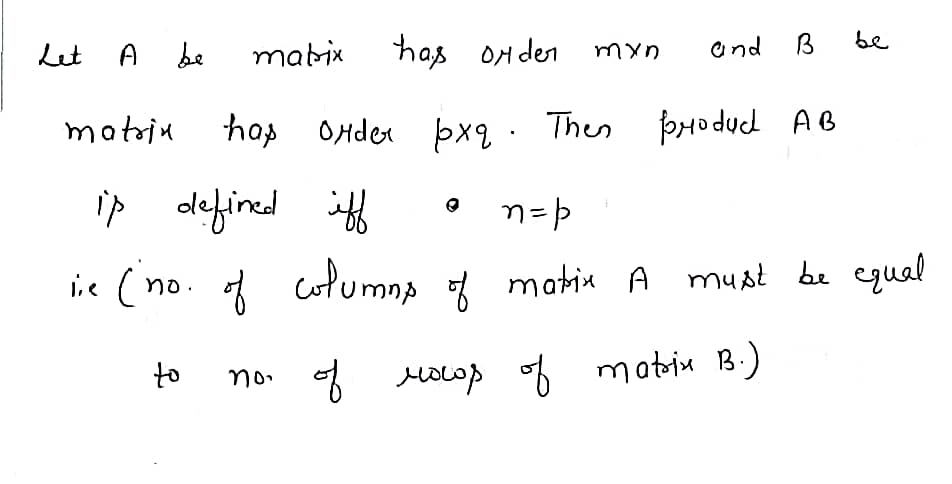 Let A be matrix has order mxn and B be
matrix has order pxq. Then product AB
is defined iff n=p
i.e (no. of columns of matrix A must be equal
to no. of rows of matrix B.)